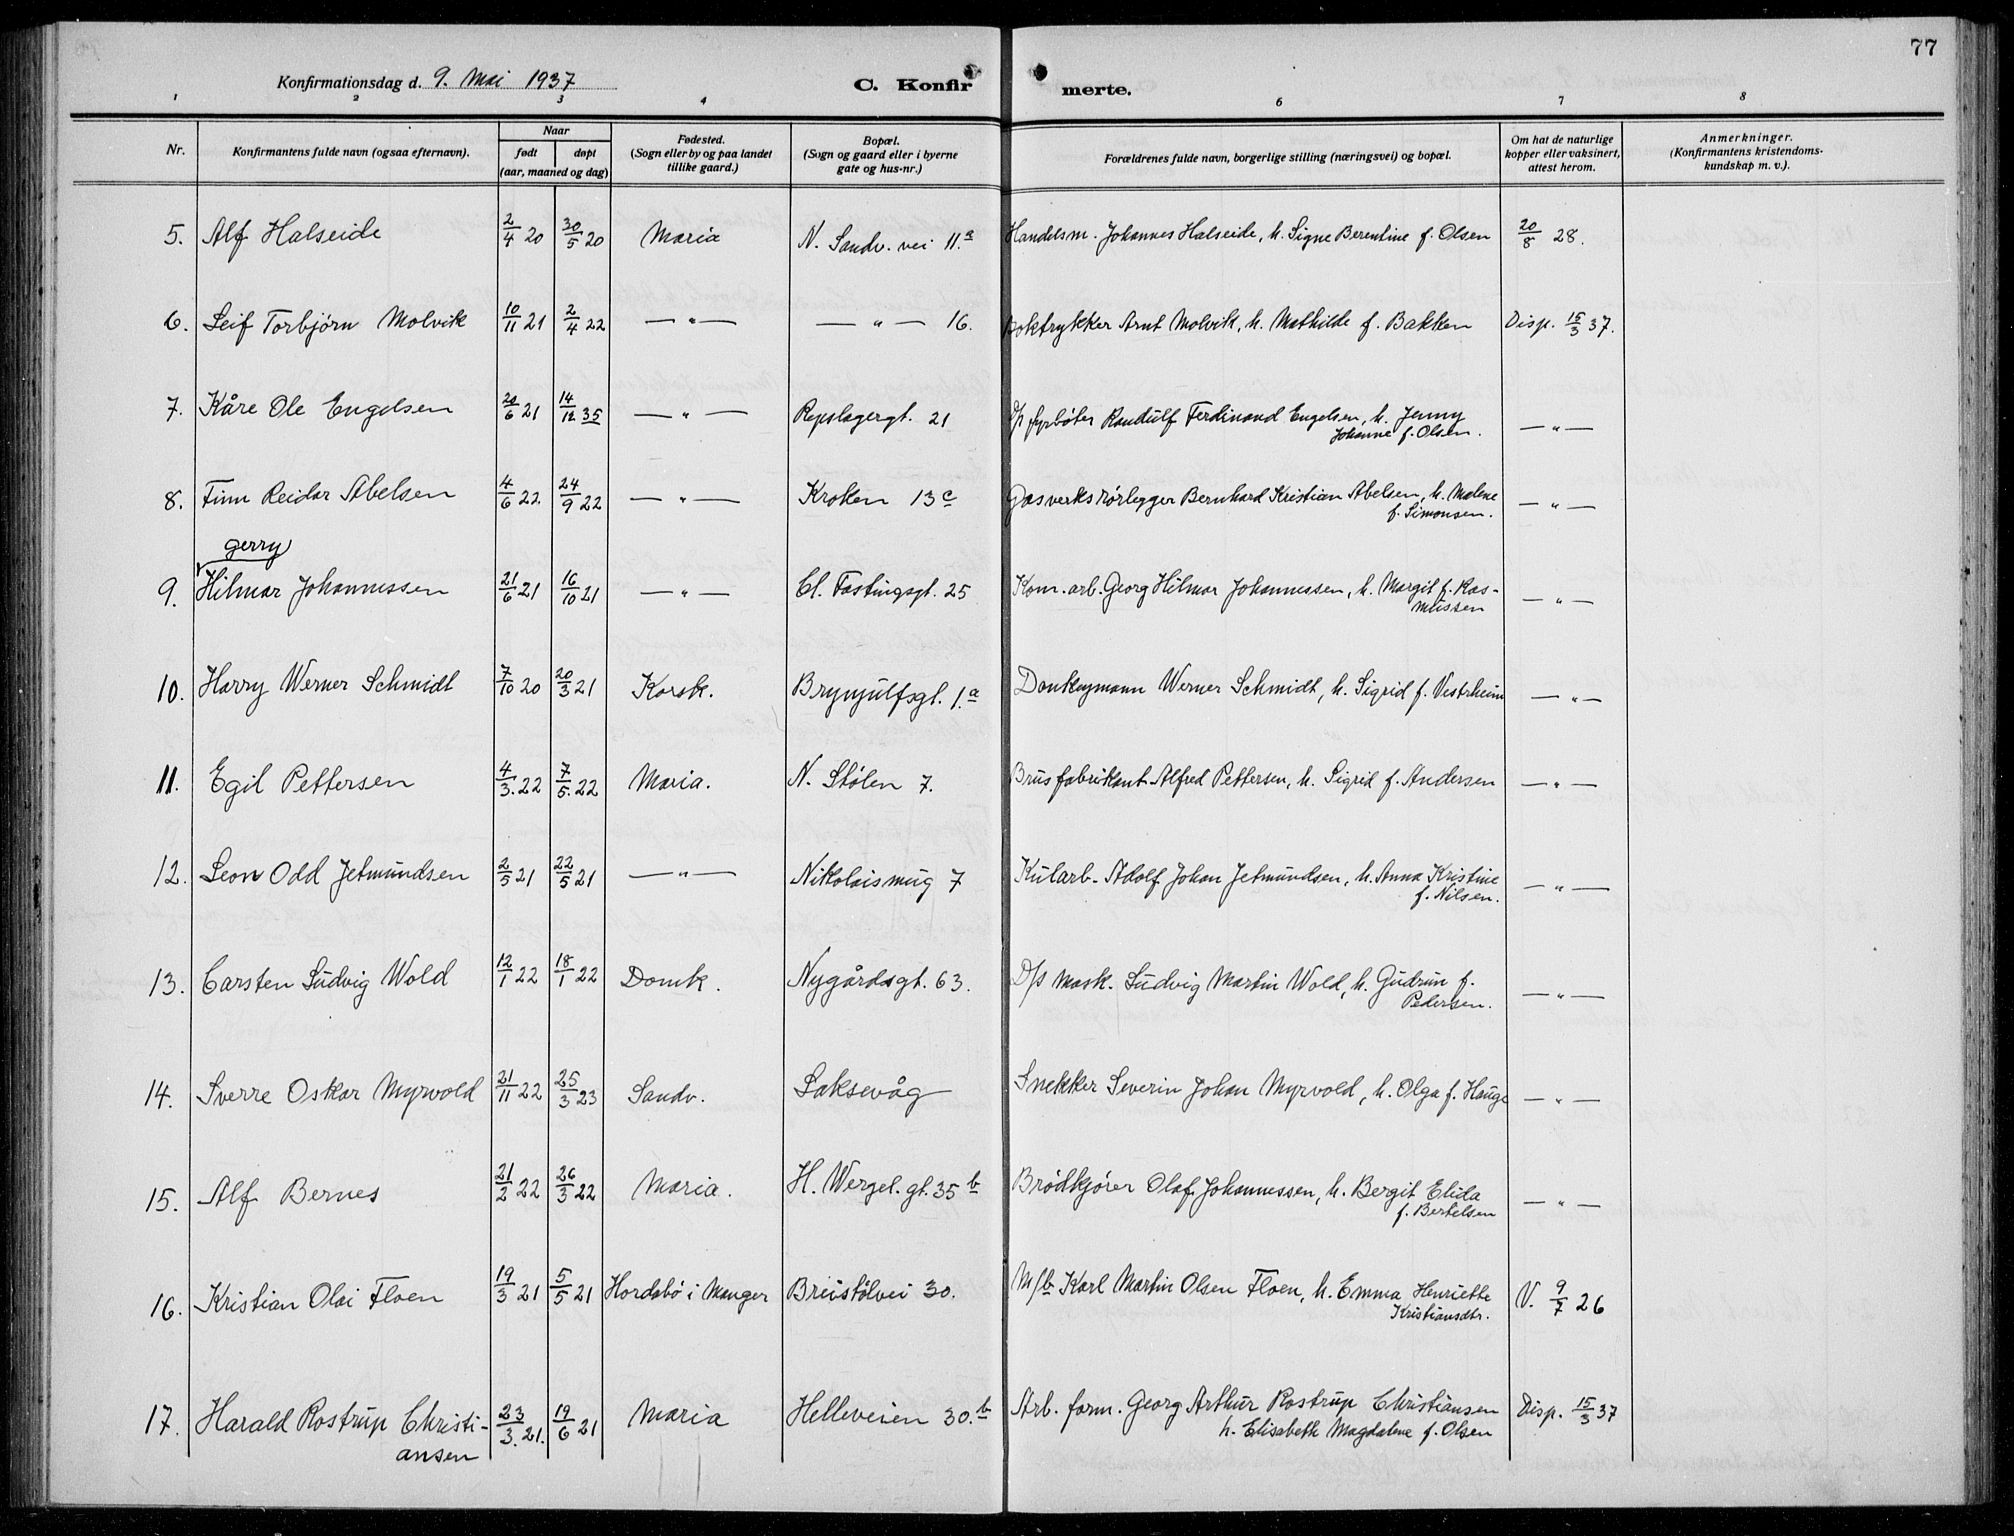 77
Konfirmationsdag d. 9. Mai 1937 C. Konfir merte.
1 2 3 4 6 7 8
Nr. Konfirmantens fulde navn (ogsaa efternavn). Naar født døpt (aar, maaned og dag) Fødested. (Sogn eller by og paa landet tillike gaard.) Bopæl. (Sogn og gaard eller i byerne gate og hus-nr.) Forældrenes fulde navn, borgerlige stilling (næringsvei) og bopæl. Om hat de naturlige kopper eller vaksinert, attest herom. Anmerkninger. (Konfirmantens kristendoms- kundskap m. v.).
5. Alf Halseide 2/4 20 30/5 20 Maria N. Sandv. vei 11.a Handelsm. Johannes Halseide, h. Signe Berentine f. Olsen 20/8 28.
6. Leif Torbjørn Molvik 10/11 21 2/4 22 — " — — " — 16. Boktrykker Arnt Molvik, h. Mathilde f. Bakken Disp. 15/3 37.
7. Kåre Ole Engelsen 20/6 21 14/12 35 — " — Repslagergt. 21 D/s fyrbøter Randulf Ferdinand Engelsen, h. Jenny — " —
Johanne f. Olsen.
8. Finn Reidar Abelsen 4/6 22 24/9 22 — " — Kroken 13c Gasverksrørlegger Bernhard Kristian Abelsen, h. Malene — " —
f. Simonsen.
gerry
9. Hilmar Johannessen 21/6 21 16/10 21 — " — Cl. Fastingsgt. 25 Kom. arb. Georg Hilmar Johannessen, h. Margit f. Ras- — " —
mussen
10. Harry Werner Schmidt 7/10 20 20/3 21 Korsk. Brynjulfsgt. 1.a Donkeymann Werner Schmidt, h. Sigrid f. Vestrheim — " —
11. Egil Pettersen 4/3. 22 7/5. 22 Maria. N. Stølen 7. Brusfabrikant Alfred Pettersen, h. Sigrid f. Andersen — " —
12. Leon Odd Jetmundsen 2/5 21 22/5 21 — " — Nikolaismug 7 Kularb. Adolf Johan Jetmundsen, h. Anna Kristine — " —
f. Nilsen.
13. Carsten Ludvig Wold 12/1 22 18/1 22 Domk. Nygårdsgt. 63. D/s mask. Ludvig Martin Wold, h. Gudrun f. — " —
Pedersen.
14. Sverre Oskar Myrvold 21/11 22 25/3 23 Sandv. Laksevåg Snekker Severin Johan Myrvold, h. Olga f. Hauge — " —
15. Alf Bernes 21/2 22 26/3 22 Maria. H. Wergel. gt. 35 b Brødkjører Olaf Johannessen, h. Bergit Elida — " —
f. Bertelsen
16. Kristian Olai Floen 19/3 21 5/5 21 Hordabø i Manger Breistølvei 30. M/b Karl Martin Olsen Floen, h. Emma Henriette V. 9/7 26
Kristiansdtr.
17. Harald Rostrup Christi- 23/3. 21. 19/6 21 Maria Helleveien 30.b Arb. form. Georg Arthur Rostrup Christiansen Disp. 15/3 37
ansen h. Elisabeth Magdalene f. Olsen